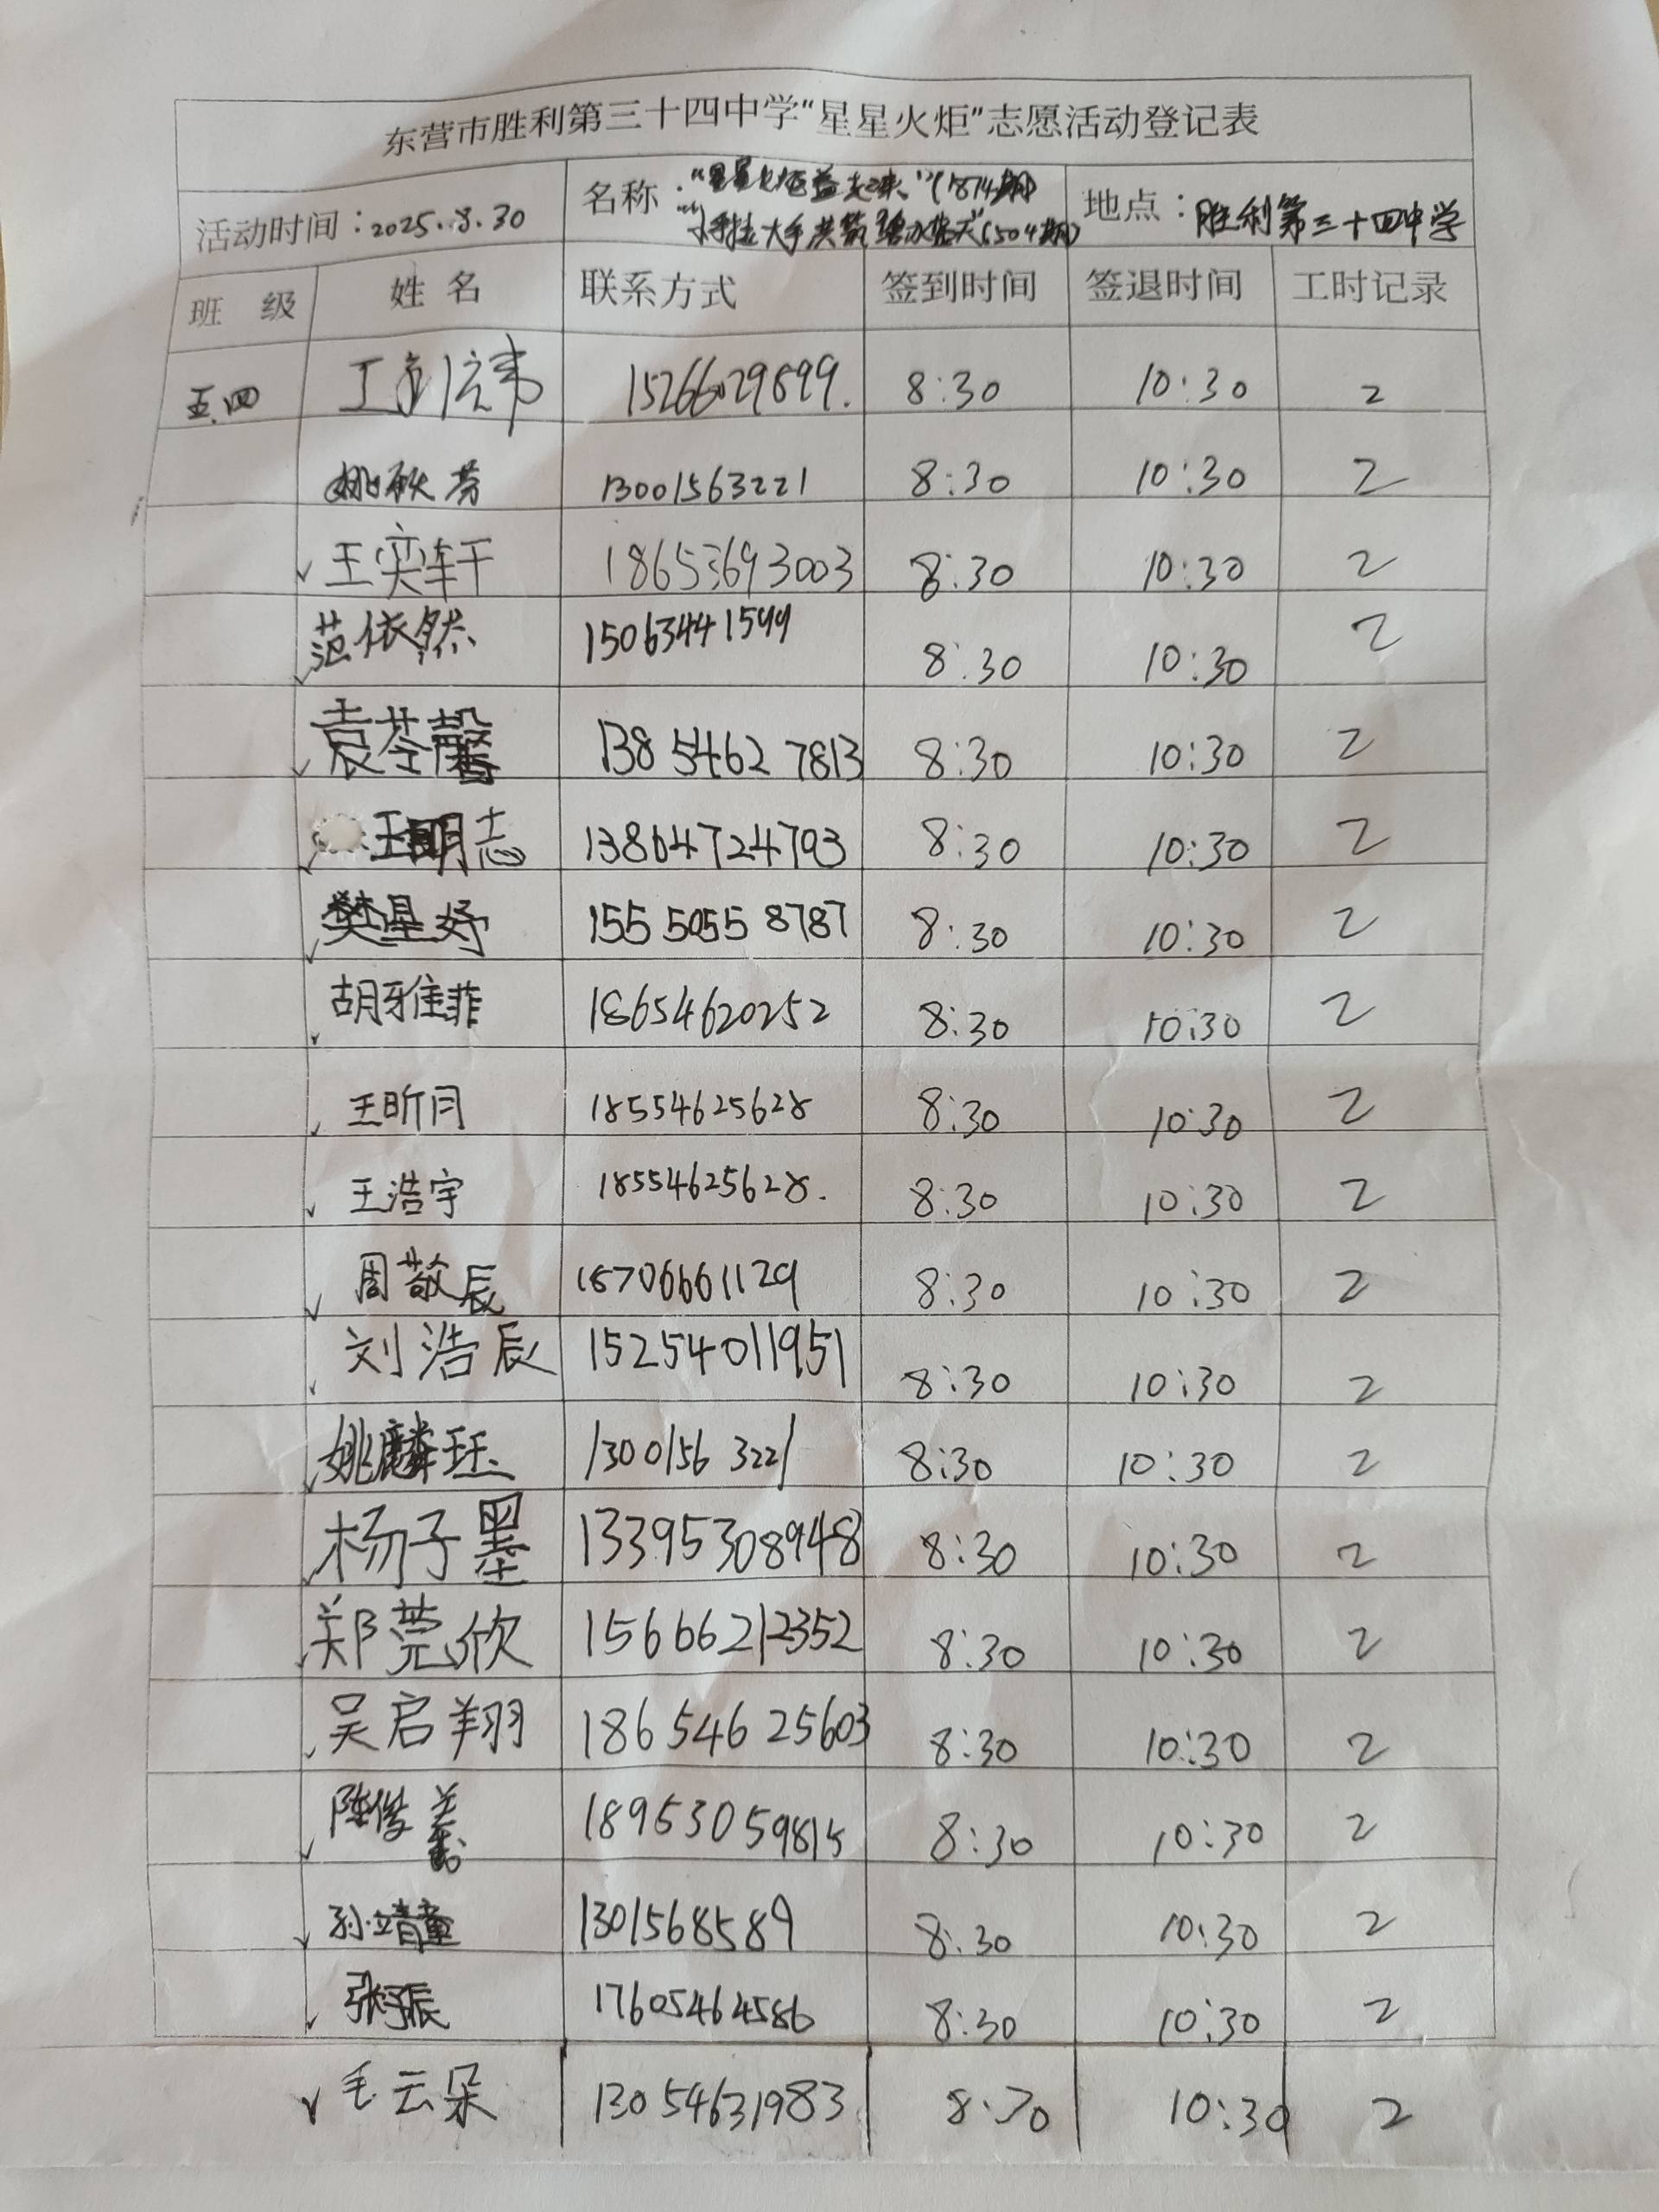 东营市胜利第三十四中学“星星火炬”志愿活动登记表
活动时间：2025.8.30 名称：“星星火炬益起来”(1874期) 地点：胜利第三十四中学
“小手拉大手共筑碧水蓝天”(504期)
班 级 姓 名 联系方式 签到时间 签退时间 工时记录
五.四 丁 15266029899. 8:30 10:30 2
姚秋芳 13001563221 8:30 10:30 2
王奕轩 18653693003 8:30 10:30 2
范依然 15063441599 8:30 10:30 2
袁苓馨 138 5462 7813 8:30 10:30 2
王明志 13864724793 8:30 10:30 2
樊星妤 155 5055 8787 8:30 10:30 2
胡雅菲 18654620252 8:30 10:30 2
王昕月 18554625628 8:30 10:30 2
王浩宇 18554625628. 8:30 10:30 2
周敬辰 18706661129 8:30 10:30 2
刘浩辰 15254011951 8:30 10:30 2
姚麟珏 1300156 3221 8:30 10:30 2
杨子墨 13395308948 8:30 10:30 2
郑莞欣 15666212352 8:30 10:30 2
吴启翔 186 546 25603 8:30 10:30 2
陈俊羲 18953059815 8:30 10:30 2
孙靖童 1301568589 8:30 10:30 2
张振 17605464586 8:30 10:30 2
毛云朵 13054631983 8:30 10:30 2